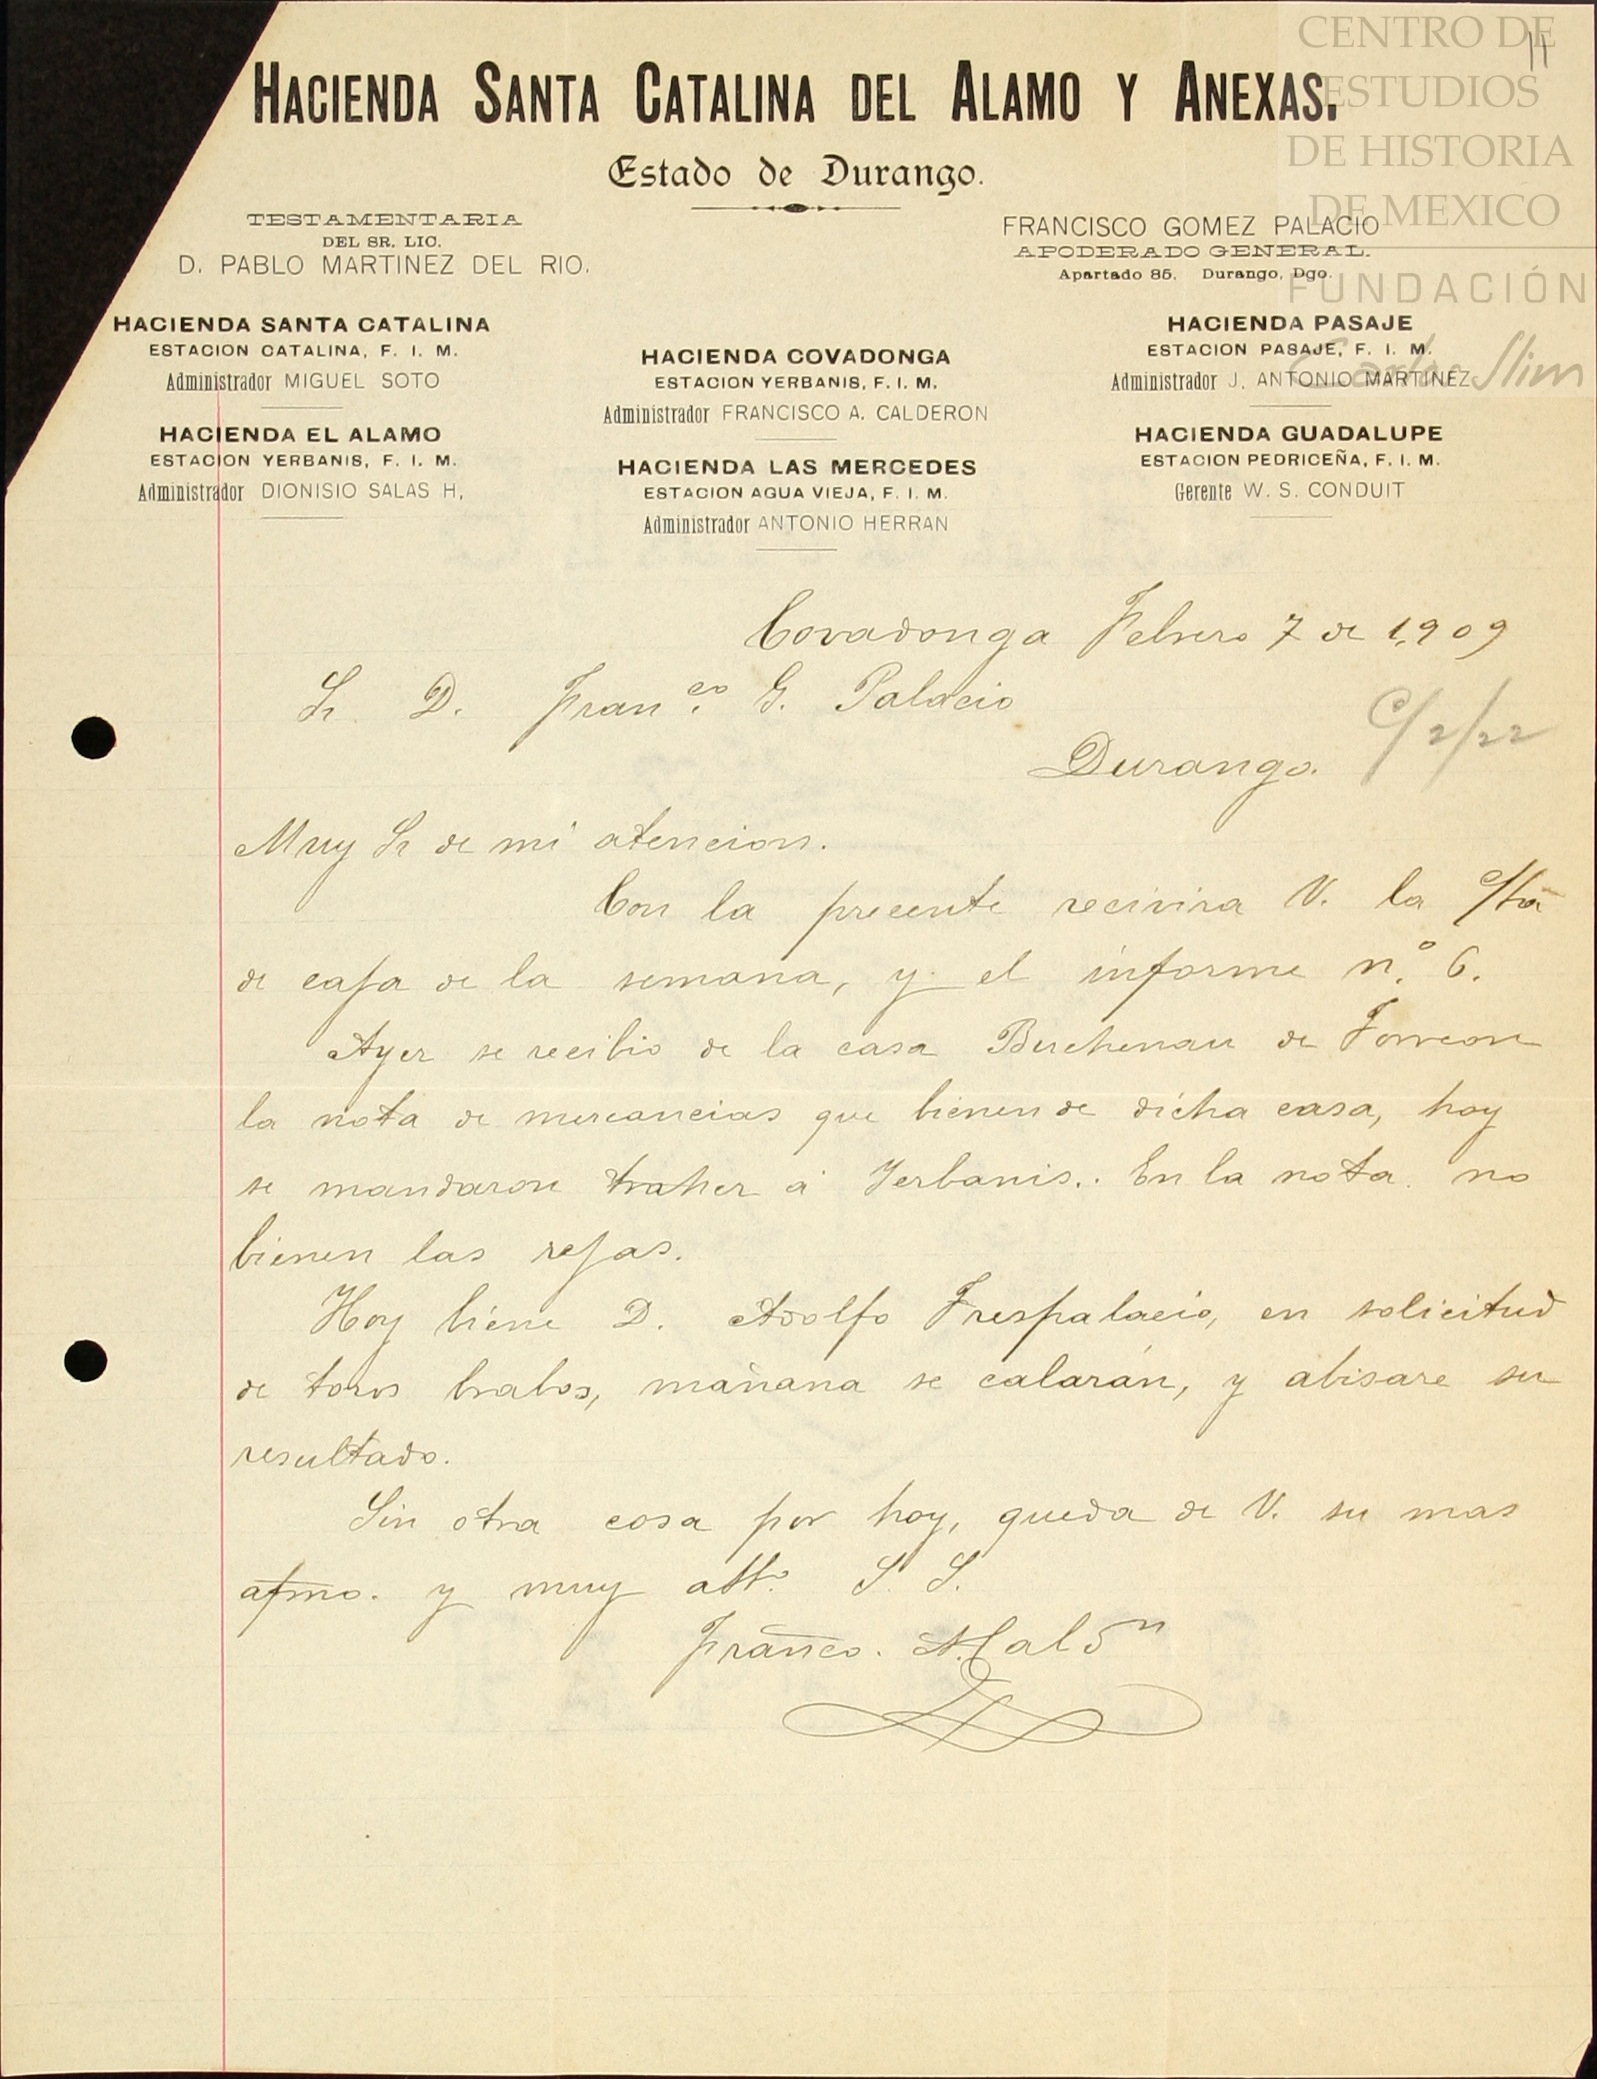 CENTRO DE
ESTUDIOS
DE HISTORIA
DE MEXICO
FUNDACIÓN
Carlos Slim
11
HACIENDA SANTA CATALINA DEL ALAMO Y ANEXAS.
Estado de Durango.
TESTAMENTARIA
DEL SR. LIC.
D. PABLO MARTINEZ DEL RIO.
FRANCISCO GOMEZ PALACIO
APODERADO GENERAL.
Apartado 85. Durango, Dgo.
HACIENDA SANTA CATALINA
ESTACION CATALINA, F. I. M.
Administrador MIGUEL SOTO
HACIENDA EL ALAMO
ESTACION YERBANIS, F. I. M.
Administrador DIONISIO SALAS H,
HACIENDA COVADONGA
ESTACION YERBANIS, F. I. M.
Administrador FRANCISCO A. CALDERON
HACIENDA LAS MERCEDES
ESTACION AGUA VIEJA, F. I. M.
Administrador ANTONIO HERRAN
HACIENDA PASAJE
ESTACION PASAJE, F. I. M.
Administrador J. ANTONIO MARTINEZ
HACIENDA GUADALUPE
ESTACION PEDRICEÑA, F. I. M.
Gerente W. S. CONDUIT
Covadonga Febrero 7 de 1,909
Sr. D. Fran.co G. Palacio
Durango.
C/2/22
Muy Sr de mi atencion.
Con la precente recivira V. la c/ta
de caja de la semana, y el informe n.o 6.
Ayer se recibio de la casa Buchenau de Torreon
la nota de mercancias que bienen de dicha casa, hoy
se mandaron traher á Yerbanis. En la nota no
bienen las rejas.
Hoy biene D. Adolfo Trespalacio, en solicitud
de toros brabos, mañana se calarán, y abisare su
resultado.
Sin otra cosa por hoy, queda de V. su mas
afmo. y muy atto. S. S.
Franco. A. Calón